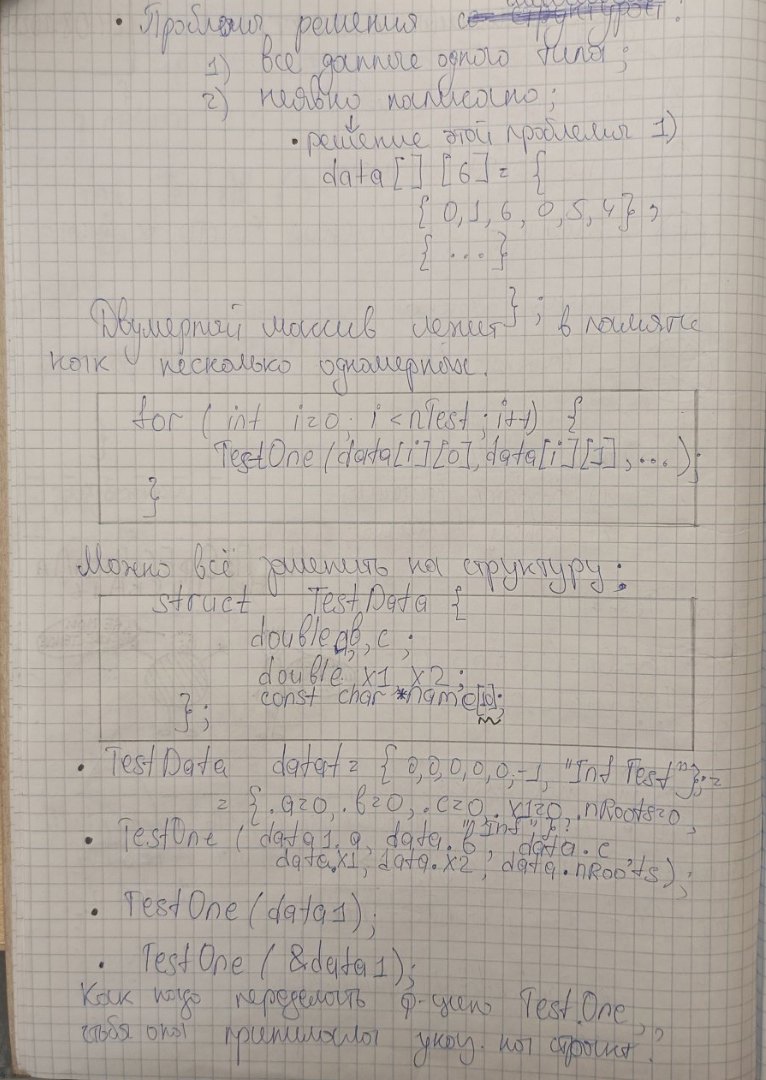 • Проблемы решения со структурой:
1) все данные одного типа;
2) неявно написано;
• решение этой проблемы 1)
data[][6] = {
{0,1,6,0,5,4},
{...}
};
Двумерный массив лежит в памяти
как несколько одномерных.
for (int i=0; i<nTest; i++) {
TestOne(data[i][0], data[i][1],...);
}
Можно всё заменить на структуру:
struct TestData {
double a,b,c;
double x1, x2;
const char *name[10];
};
• TestData data1 = {0,0,0,0,0,-1, "Inf Test"}; =
= {.a=0, .b=0, .c=0, .x1=0, .nRoots=0,
"Inf"};
• TestOne (data1.a, data.b, data.c
data.x1, data.x2, data.nRoots);
• TestOne(data1);
• TestOne(&data1);
Как надо переделать ф-цию TestOne,
чтобы она принимала указ. на строки?